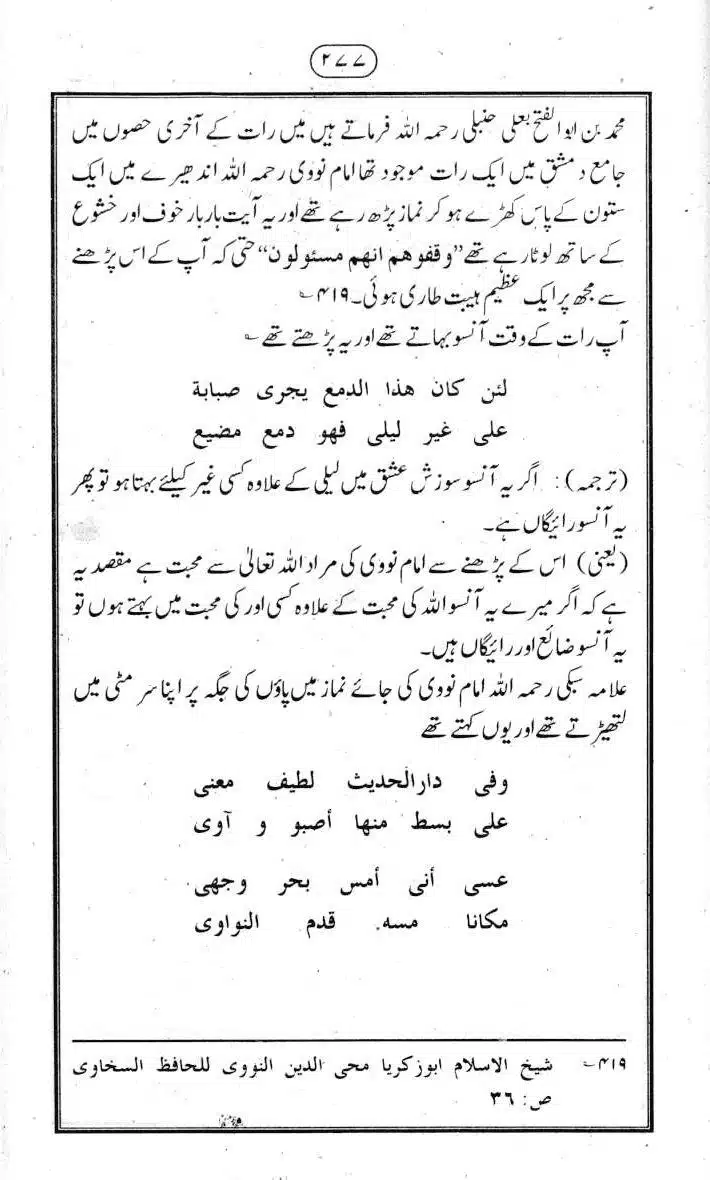 ۲۷۷
محمد بن ابو الفتح بعلی حنبلی رحمہ اللہ فرماتے ہیں میں رات کے آخری حصوں میں
جامع دمشق میں ایک رات موجود تھا امام نووی رحمہ اللہ اندھیرے میں ایک
ستون کے پاس کھڑے ہو کر نماز پڑھ رہے تھے اور یہ آیت بار بار خوف اور خشوع
کے ساتھ لوٹا رہے تھے ”وقفوهم انهم مسئولون“ حتی کہ آپ کے اس پڑھنے
سے مجھ پر ایک عظیم ہیبت طاری ہوئی۔ ۴۱۹؎
آپ رات کے وقت آنسو بہاتے تھے اور یہ پڑھتے تھے ؎
لئن کان هذا الدمع یجری صبابة
علی غیر لیلی فهو دمع مضیع
(ترجمہ): اگر یہ آنسو سوزش عشق میں لیلی کے علاوہ کسی غیر کیلئے بہتا ہو تو پھر
یہ آنسو رائیگاں ہے۔
(یعنی) اس کے پڑھنے سے امام نووی کی مراد اللہ تعالیٰ سے محبت ہے مقصد یہ
ہے کہ اگر میرے یہ آنسو اللہ کی محبت کے علاوہ کسی اور کی محبت میں بہتے ہوں تو
یہ آنسو ضائع اور رائیگاں ہیں۔
علامہ سبکی رحمہ اللہ امام نووی کی جائے نماز میں پاؤں کی جگہ پر اپنا سر مٹی میں
لتھیڑتے تھے اور یوں کہتے تھے
وفی دارالحدیث لطیف معنی
علی بسط منها أصبو و آوی
عسی أنی أمس بحر وجهی
مکانا مسه قدم النواوی
۴۱۹؎ شیخ الاسلام ابوزکریا محی الدین النووی للحافظ السخاوی
ص: ۳۶